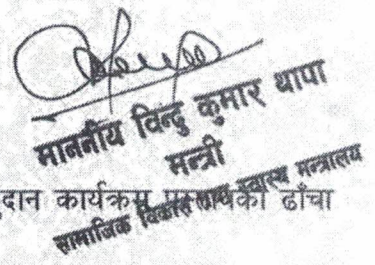 माननीय विन्दु कुमार थापा
मन्त्री
सामाजिक विकास तथा स्वास्थ्य मन्त्रालय
दान कार्यक्रम ढाँचा